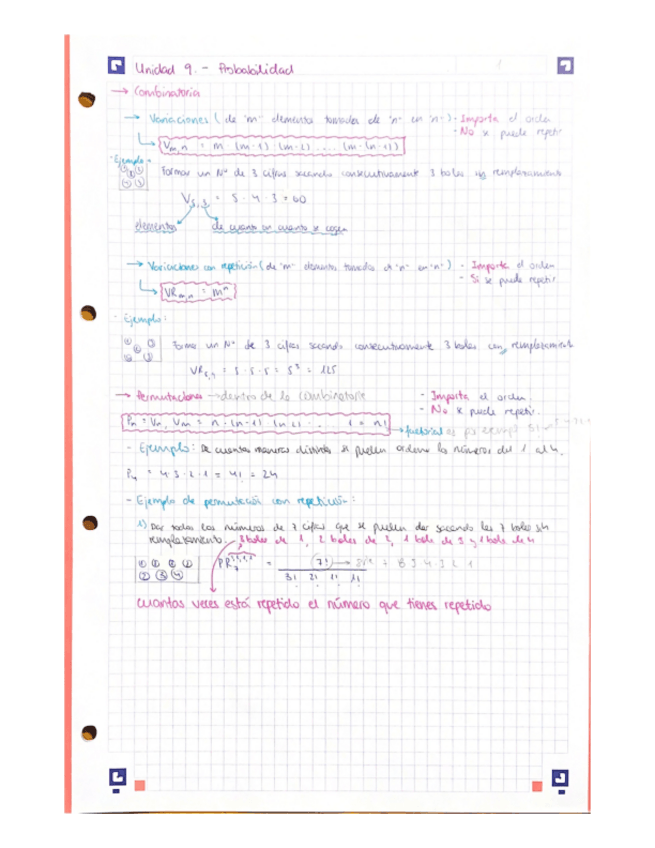 Unidad 9. - Probabilidad
1
→ Combinatoria
→ Variaciones (de "m" elementos tomados de "n" en "n") - Importa el orden
- No se puede repetir
V m,n = m · (m-1) · (m-2) .... (m-(n-1))
- Ejemplo -
Formar un Nº de 3 cifras sacando consecutivamente 3 bolas sin remplazamiento
V5,3 = 5 · 4 · 3 = 60
elementos de cuanto en cuanto se cogen
→ Variaciones con repetición (de "m" elementos tomados de "n" en "n") - Importa el orden
- Si se puede repetir
VR m,n = mⁿ
- Ejemplo:
Formar un Nº de 3 cifras sacando consecutivamente 3 bolas con remplazamiento
= 5 · 5 · 5 = 5³ = 125
→ Permutaciones → dentro de la combinatoria - Importa el orden.
- No se puede repetir.
→ factorial
- Ejemplo: De cuantas maneras distintas se pueden ordenar los números del 1 al 4.
P4 = 4 · 3 · 2 · 1 = 4! = 24
- Ejemplo de permutación con repetición:
1) Dar todos los números de 7 cifras que se pueden dar sacando las 7 bolas sin
remplazamiento. 3 bolas de 1, 2 bolas de 2, 1 bola de 3 y 1 bola de 4
PR7 = 7!
3! 2! 1! 1!
cuantas veces está repetido el número que tienes repetido